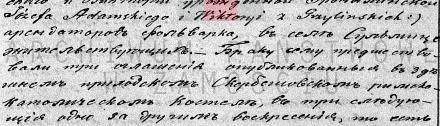 Iózefa Adamskiego i Wiktoryi z Trylinskich:)
арендаторов фольварка, въ селѣ
жительствующихъ. — Браку сему предшество-
вали три оглашенія опубликованныя въ здѣ-
шнемъ приходскомъ Скербешовскомъ римско
католическомъ Костелѣ, въ три слѣдую-
щія одно за другимъ воскресенія, то есть